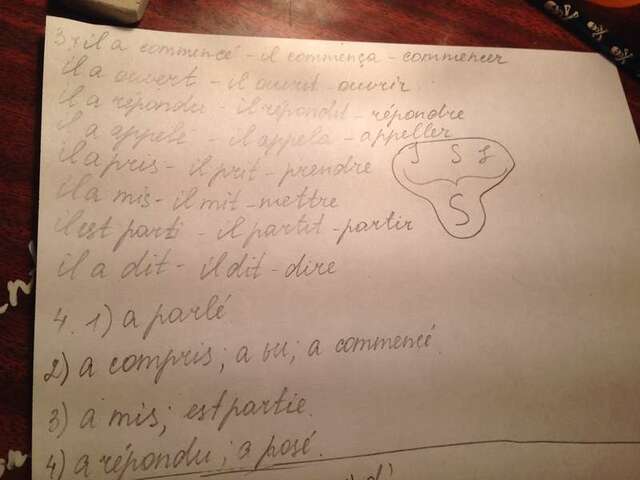 3. il a commencé - il commença - commencer
il a ouvert - il ouvrit - ouvrir
il a répondu - il répondit - répondre
il a appelé - il appela - appeller
il a pris - il prit - prendre
il a mis - il mit - mettre
il est parti - il partit - partir
il a dit - il dit - dire
4. 1) a parlé
2) a compris; a vu; a commencé.
3) a mis; est partie.
4) a répondu; a posé.